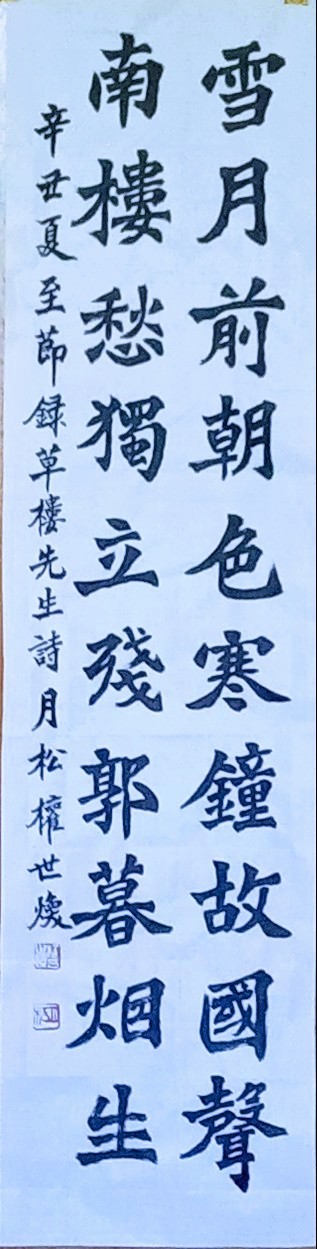 雪月前朝色寒鐘故國聲
南樓愁獨立殘郭暮烟生
辛丑夏至節録草樓先生詩月松權世煥